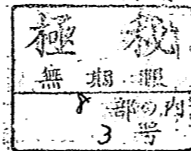 極秘
無期限
8部の内
3号